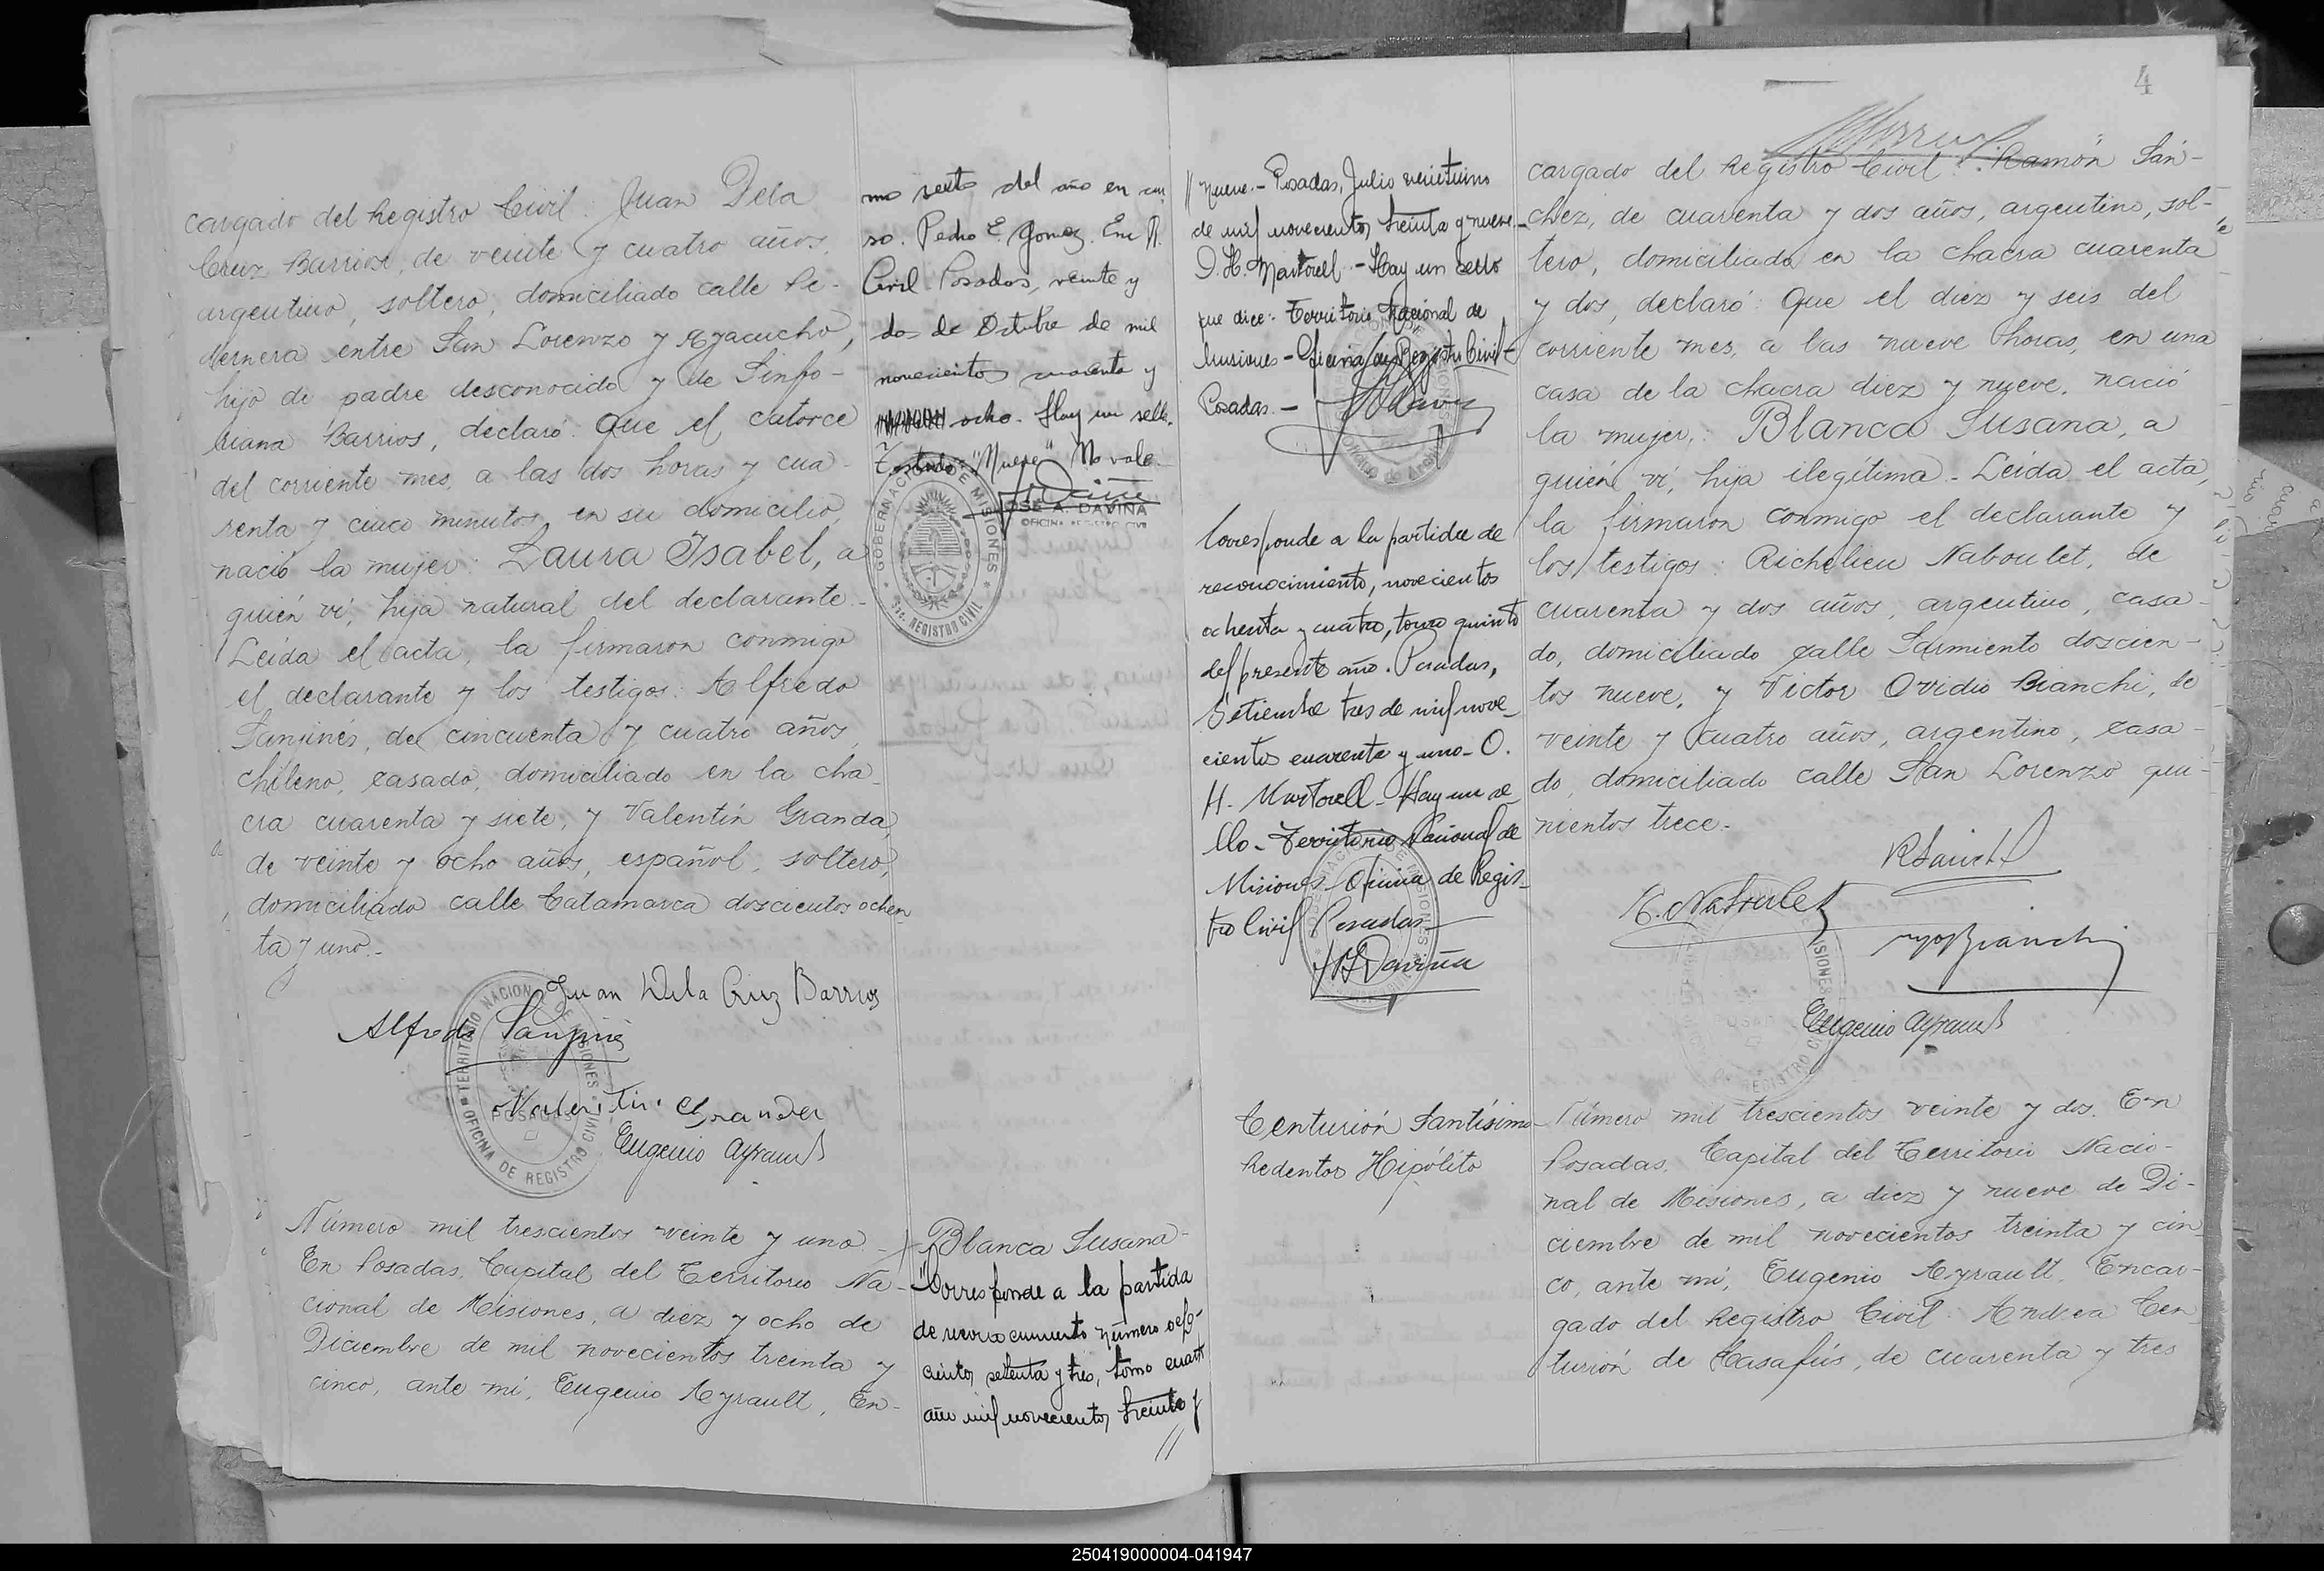 cargado del Registro Civil: Juan Dela
Cruz Barrios, de veinte y cuatro años,
argentino, soltero, domiciliado calle Pe-
dernera entre San Lorenzo y Ayacucho,
hijo de padre desconocido y de Sinfo-
riana Barrios, declaró: Que el catorce
del corriente mes, a las dos horas y cua-
renta y cinco minutos, en su domicilio,
nació la mujer: Laura Isabel, a
quién ví, hija natural del declarante.-
Leída el acta, la firmaron conmigo
el declarante y los testigos: Alfredo
Sanjinés, de cincuenta y cuatro años,
chileno, casado, domiciliado en la cha-
cra cuarenta y siete, y Valentín Granda,
de veinte y ocho años, español, soltero,
domiciliado calle Catamarca doscientos ochen
ta y uno.-
Juan Dela Cruz Barrios
Alfredo Sanjinés
Valentin Granda
Eugenio Ayrault
TERRITORIO NACIONAL DE MISIONES
POSADAS
OFICINA DE REGISTRO CIVIL
Número mil trescientos veinte y uno.-
En Posadas, Capital del Territorio Na-
cional de Misiones, a diez y ocho de
Diciembre de mil novecientos treinta y
cinco, ante mí, Eugenio Ayrault, En-
mo sexto del año en cur
so. Pedro E. Gomez. Enc R.
Civil. Posadas, veinte y
dos de Octubre de mil
novecientos cuarenta y
ocho. Hay un sello.
Testado: "Nueve" No vale.
JOSE A. DAVIÑA
OFICINA REGISTRO CIVIL
GOBERNACION DE MISIONES
REGISTRO CIVIL
Blanca Susana-
"Corresponde a la partida
de reconocimiento número ocho-
cientos setenta y tres, tomo cuarto
año mil novecientos treinta y
//
// nueve.- Posadas, Julio veintiuno
de mil novecientos treinta y nueve.-
O. H. Martorell.- Hay un sello
que dice: Territorio Nacional de
Misiones- Oficina de Registro Civil-
Posadas.-
Corresponde a la partida de
reconocimiento, novecientos
ochenta y cuatro, tomo quinto
del presente año. Posadas,
Setiembre tres de mil nove-
cientos cuarenta y uno- O.
H. Martorell- Hay un se-
llo- Territorio Nacional de
Misiones- Oficina de Regis-
tro Civil Posadas-
Daviña
Centurión Santísimo
Redentor Hipólito
4
cargado del Registro Civil: Ramón Sán-
chez, de cuarenta y dos años, argentino, sol-
tero, domiciliado en la chacra cuarenta
y dos, declaró: Que el diez y seis del
corriente mes, a las nueve horas, en una
casa de la chacra diez y nueve, nació
la mujer: Blanca Susana, a
quién ví, hija ilegítima.- Leída el acta,
la firmaron conmigo el declarante y
los testigos: Richelieu Naboulet, de
cuarenta y dos años, argentino, casa-
do, domiciliado calle Sarmiento doscien-
tos nueve, y Victor Ovidio Bianchi, de
veinte y cuatro años, argentino, casa-
do, domiciliado calle San Lorenzo qui-
nientos trece.-
R Sanchez
R. Naboulet
Bianchi
Eugenio Ayrault
Número mil trescientos veinte y dos. En
Posadas, Capital del Territorio Nacio-
nal de Misiones, a diez y nueve de Di-
ciembre de mil novecientos treinta y cin
co, ante mí, Eugenio Ayrault, Encar-
gado del Registro Civil: Andrea Cen
turión de Casafús, de cuarenta y tres
250419000004-041947